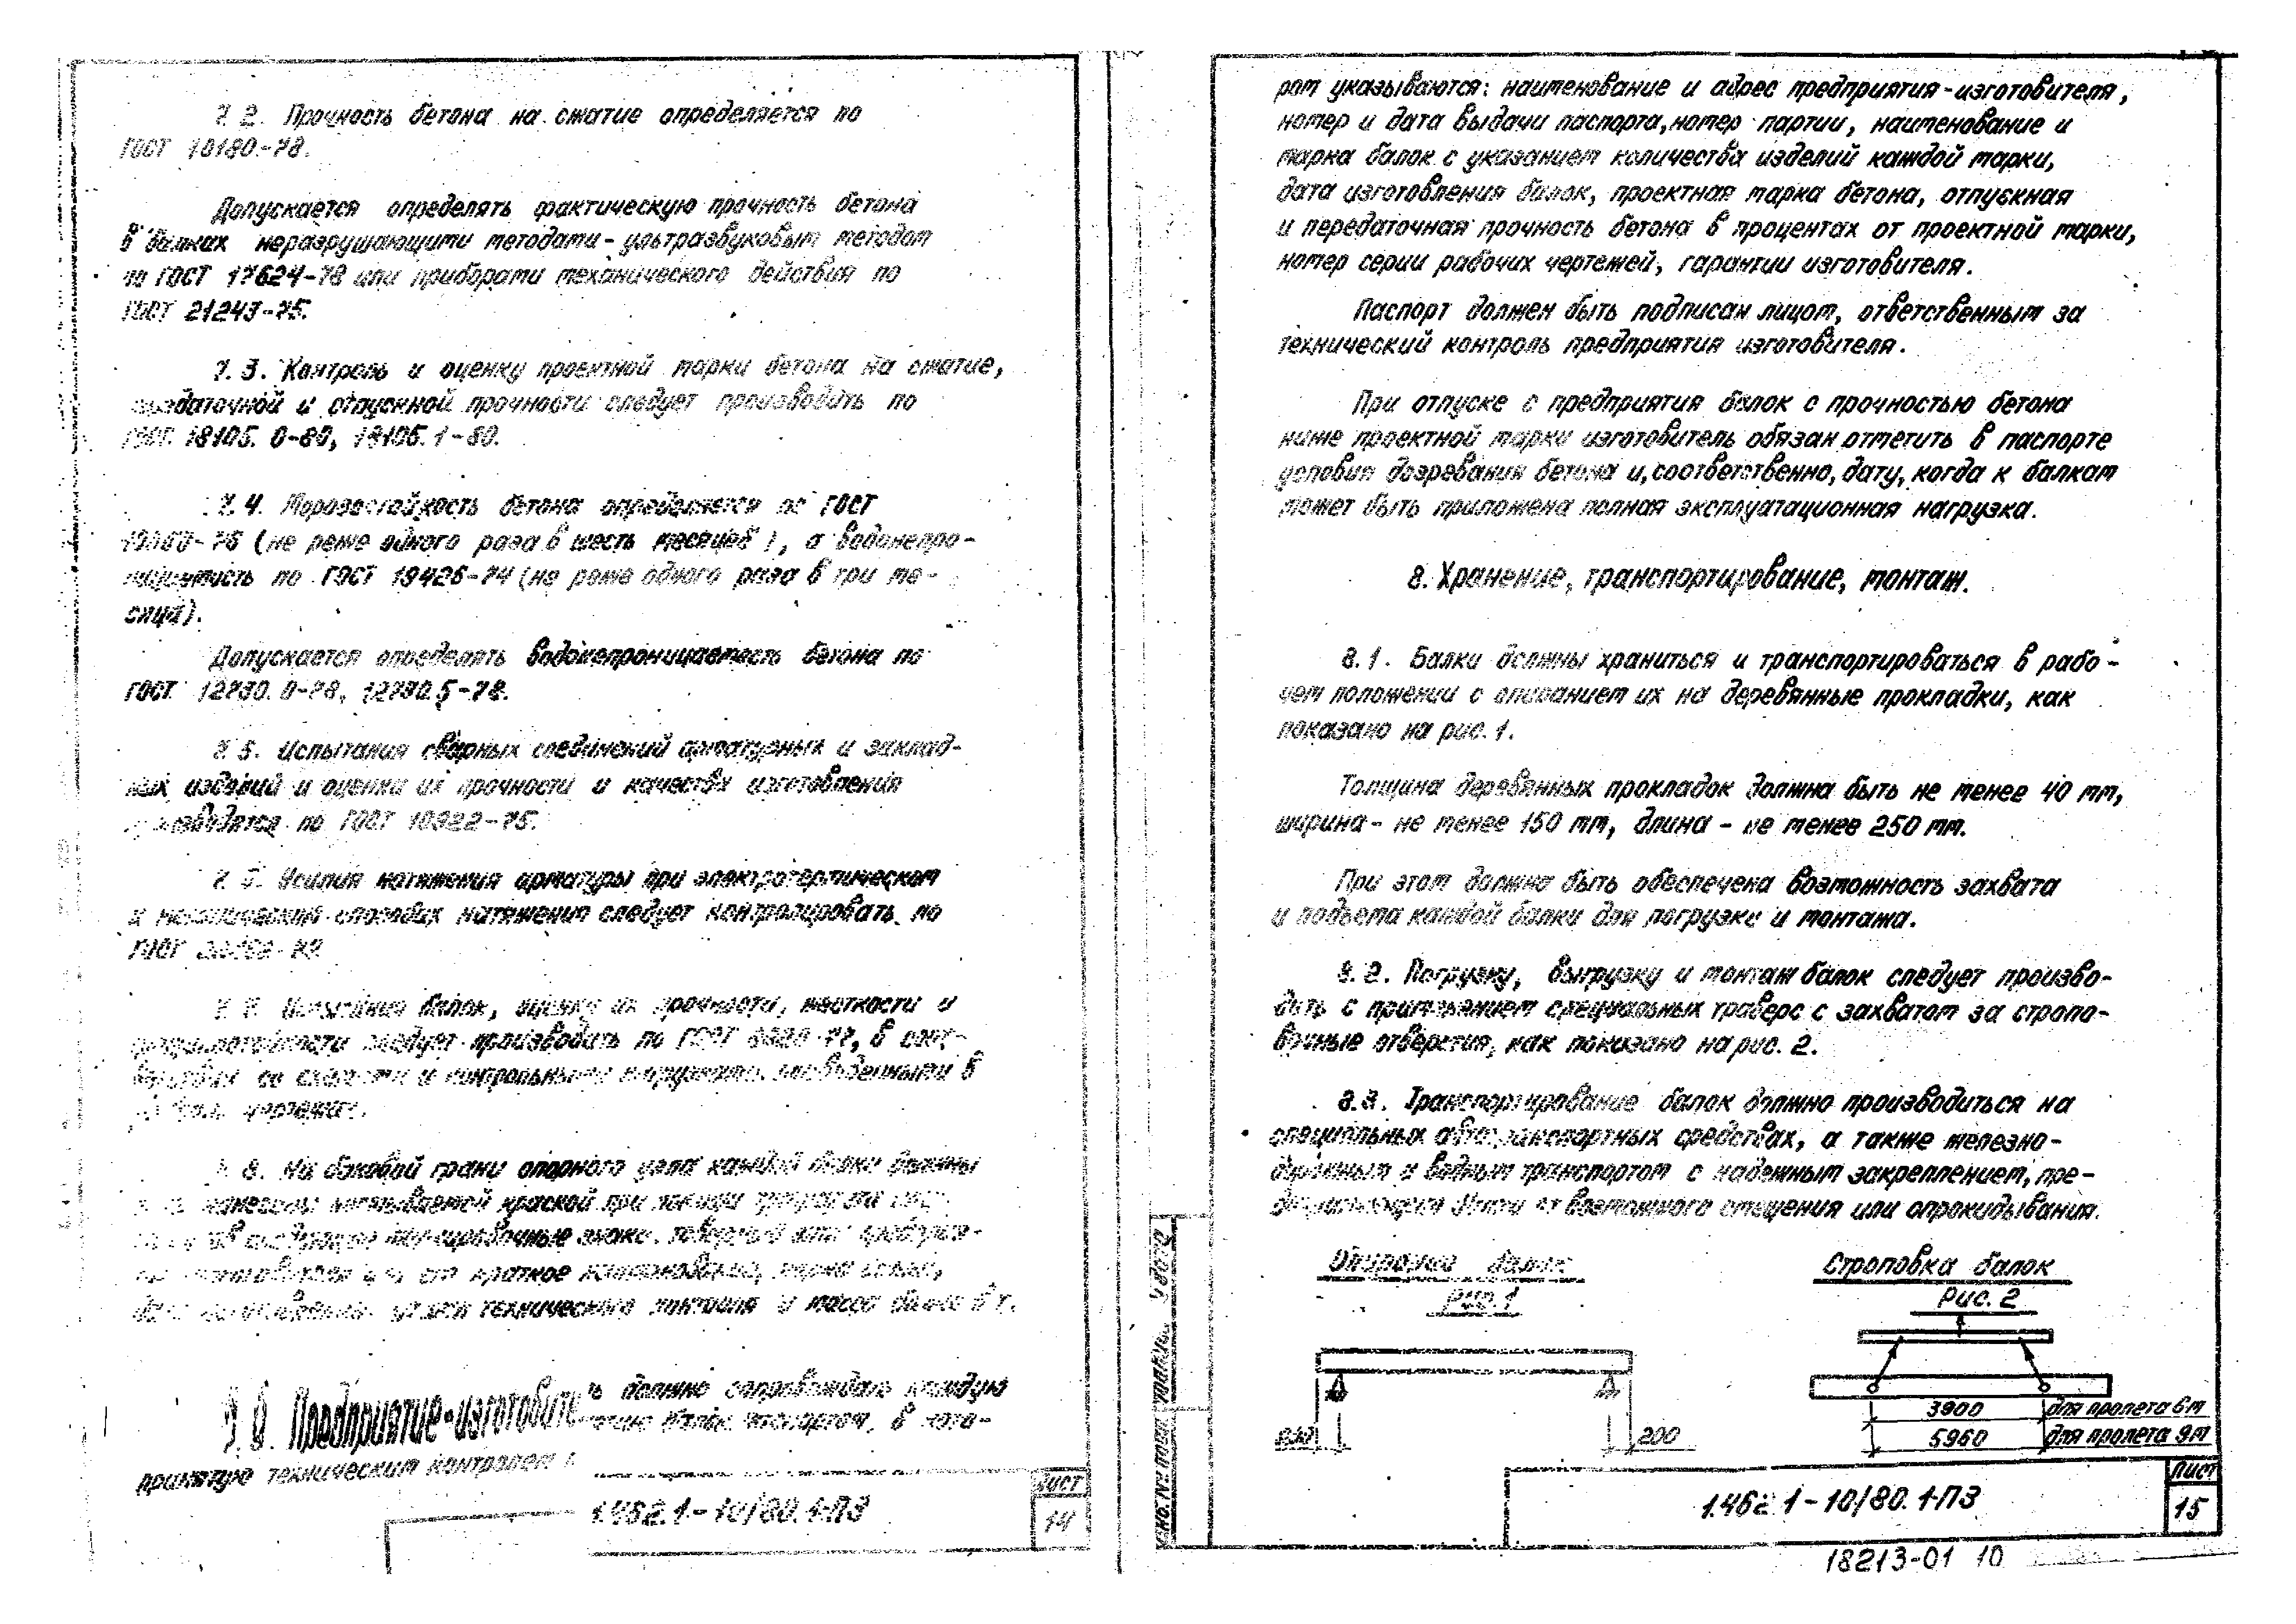 7.2. Прочность бетона на сжатие определяется по
ГОСТ 10180-78.
Допускается определять фактическую прочность бетона
в балках неразрушающими методами - ультразвуковым методом
по ГОСТ 17624-78 или приборами механического действия по
ГОСТ 21243-75.
7.3. Контроль и оценку проектной марки бетона на сжатие,
передаточной и отпускной прочности следует производить по
ГОСТ 18105.0-80, 18105.1-80.
7.4. Морозостойкость бетона определяется по ГОСТ
10060-76 (не реже одного раза в шесть месяцев), а водонепро-
ницаемость по ГОСТ 19426-74 (не реже одного раза в три ме-
сяца).
Допускается определять водонепроницаемость бетона по
ГОСТ 12730.0-78, 12730.5-78.
7.5. Испытания сварных соединений арматурных и заклад-
ных изделий и оценка их прочности и качества изготовления
производятся по ГОСТ 10922-75.
Усилия натяжения арматуры при электротермическом
и механическом способах натяжения следует контролировать по
ГОСТ
балок, оценку их прочности, жесткости и
трещиностойкости следует производить по ГОСТ 8829-77, в соот-
ветствии со схемами и контрольными нагрузками, приведенными в
чертежах.
8. На боковой грани опорного узла каждой балки должны
нанесены несмываемой краской при помощи трафарета
маркировочные знаки: товарный знак предприя-
его краткое наименование, марка балки,
технического контроля и масса балки в т.
7.9. Предприятие-изготовитель должно сопровождать каждую
принятую техническим контролем партию балок паспортом, в кото-
1.462.1-10/80.1-ПЗ
Лист
14
ром указываются: наименование и адрес предприятия-изготовителя,
номер и дата выдачи паспорта, номер партии, наименование и
марка балок с указанием количества изделий каждой марки,
дата изготовления балок, проектная марка бетона, отпускная
и передаточная прочность бетона в процентах от проектной марки,
номер серии рабочих чертежей, гарантии изготовителя.
Паспорт должен быть подписан лицом, ответственным за
технический контроль предприятия изготовителя.
При отпуске с предприятия балок с прочностью бетона
ниже проектной марки изготовитель обязан отметить в паспорте
условия дозревания бетона и, соответственно, дату, когда к балкам
может быть приложена полная эксплуатационная нагрузка.
8. Хранение, транспортирование, монтаж.
8.1. Балки должны храниться и транспортироваться в рабо-
чем положении с опиранием их на деревянные прокладки, как
показано на рис. 1.
Толщина деревянных прокладок должна быть не менее 40 мм,
ширина - не менее 150 мм, длина - не менее 250 мм.
При этом должна быть обеспечена возможность захвата
и подъема каждой балки для погрузки и монтажа.
8.2. Погрузку, выгрузку и монтаж балок следует произво-
дить с применением специальных траверс с захватом за стропо-
вочные отверстия, как показано на рис. 2.
8.3. Транспортирование балок должно производиться на
специальных автотранспортных средствах, а также железно-
дорожным и водным транспортом с надежным закреплением, пре-
дохраняющим балки от возможного смещения или опрокидывания.
Опирание балок
Рис. 1
200
200
Строповка балок
Рис. 2
3900 для пролета 6м
5960 для пролета 9м
Инв. № подл.
1.462.1-10/80.1-ПЗ
Лист
15
18213-01 10